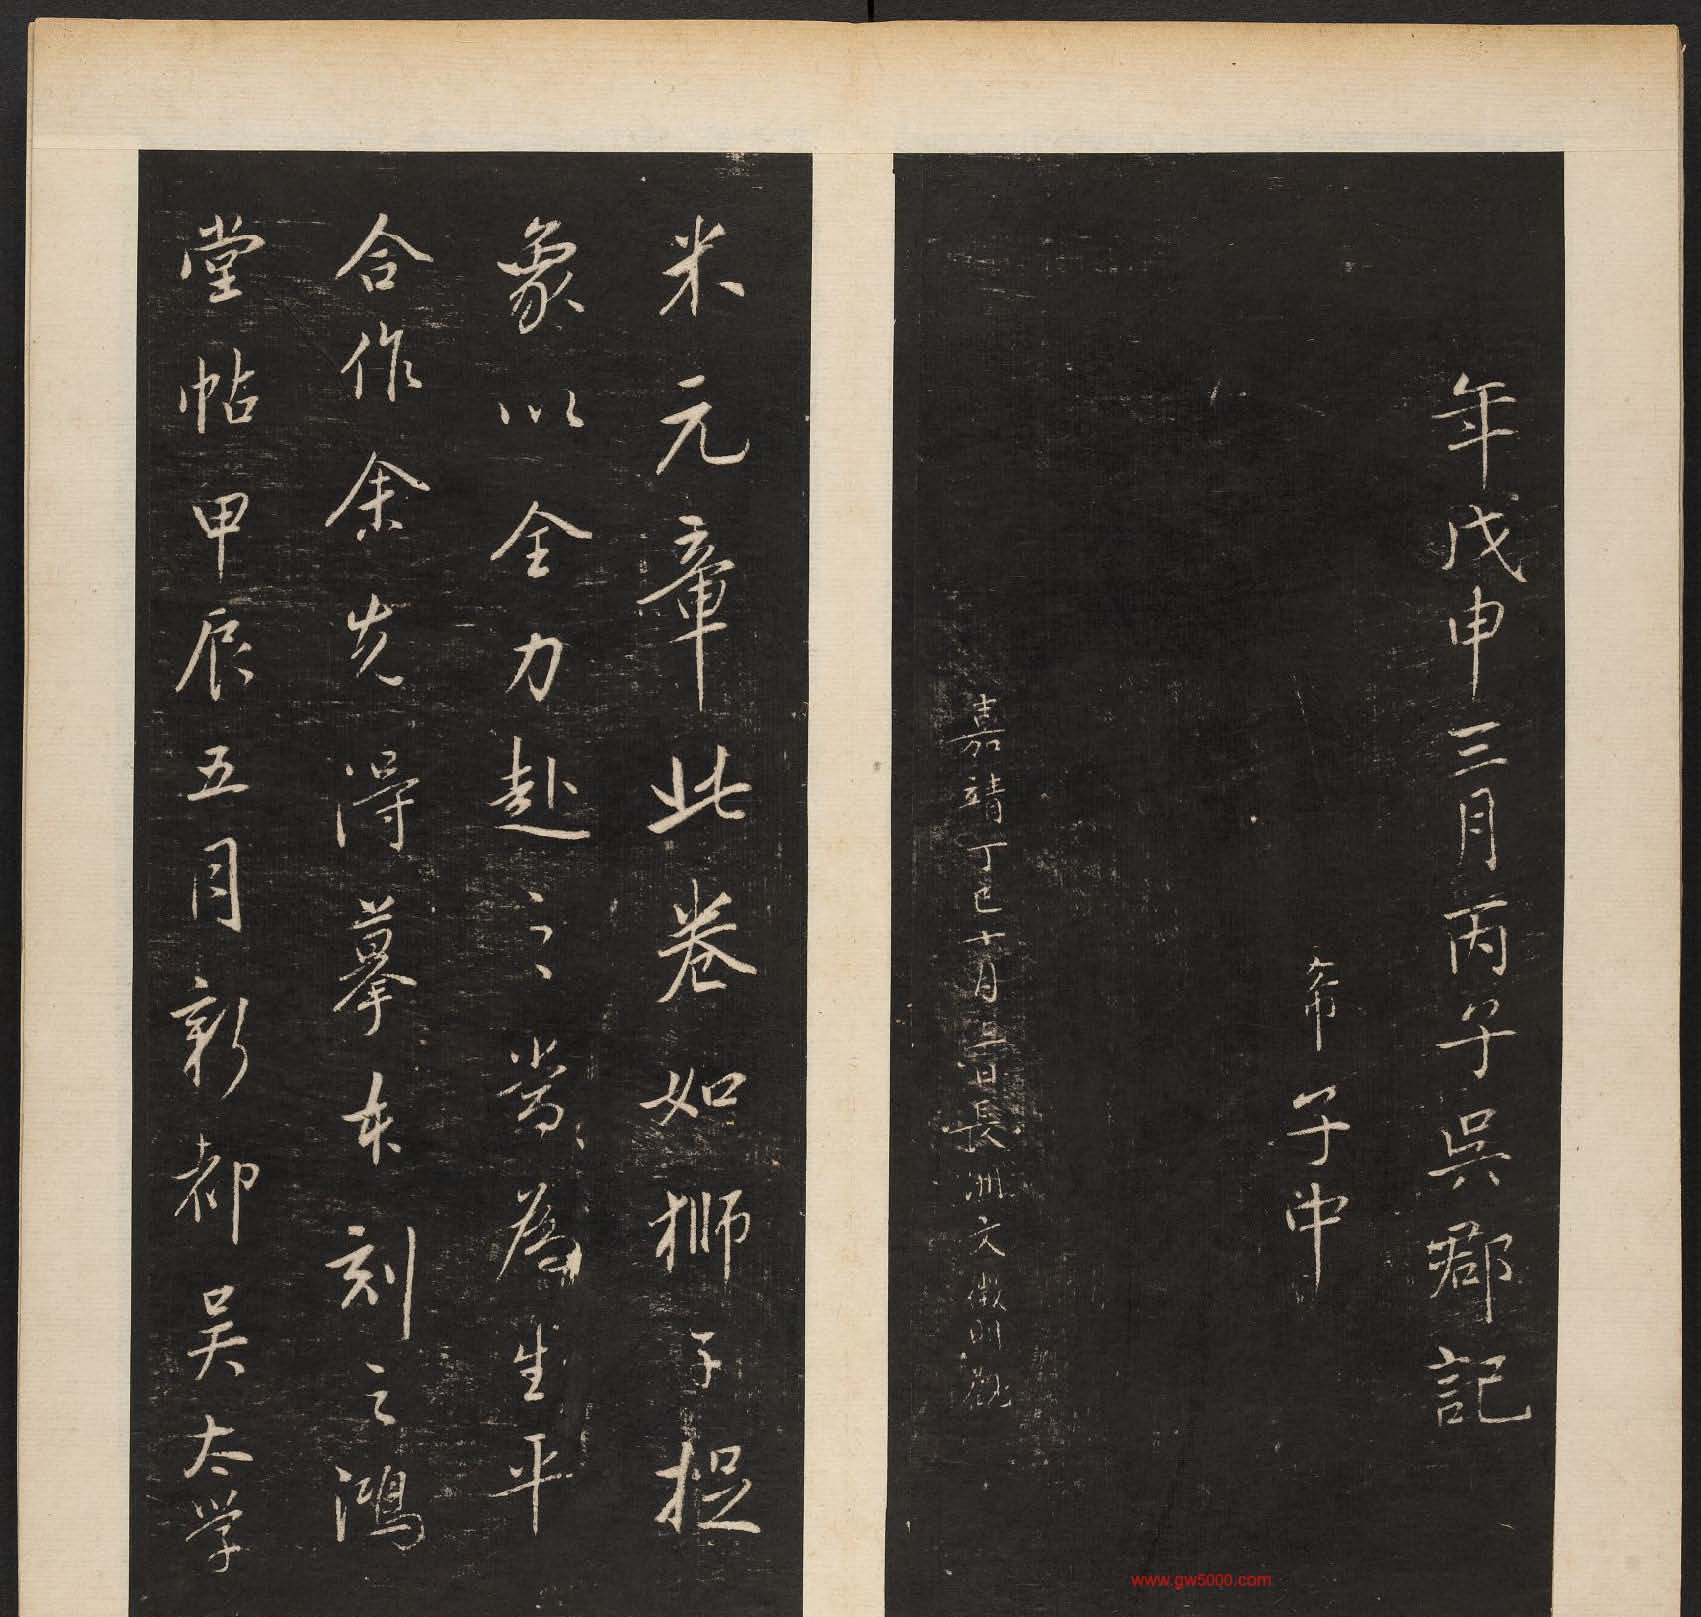 年戊申三月丙子吳郡記
希
子中
嘉靖丁巳十月二日長洲文徵明觀
米元章此卷如獅子捉
象以全力赴之當為生平
合作余先得摹本刻之鴻
堂帖甲辰五月新都吳太學
www.gw5000.com